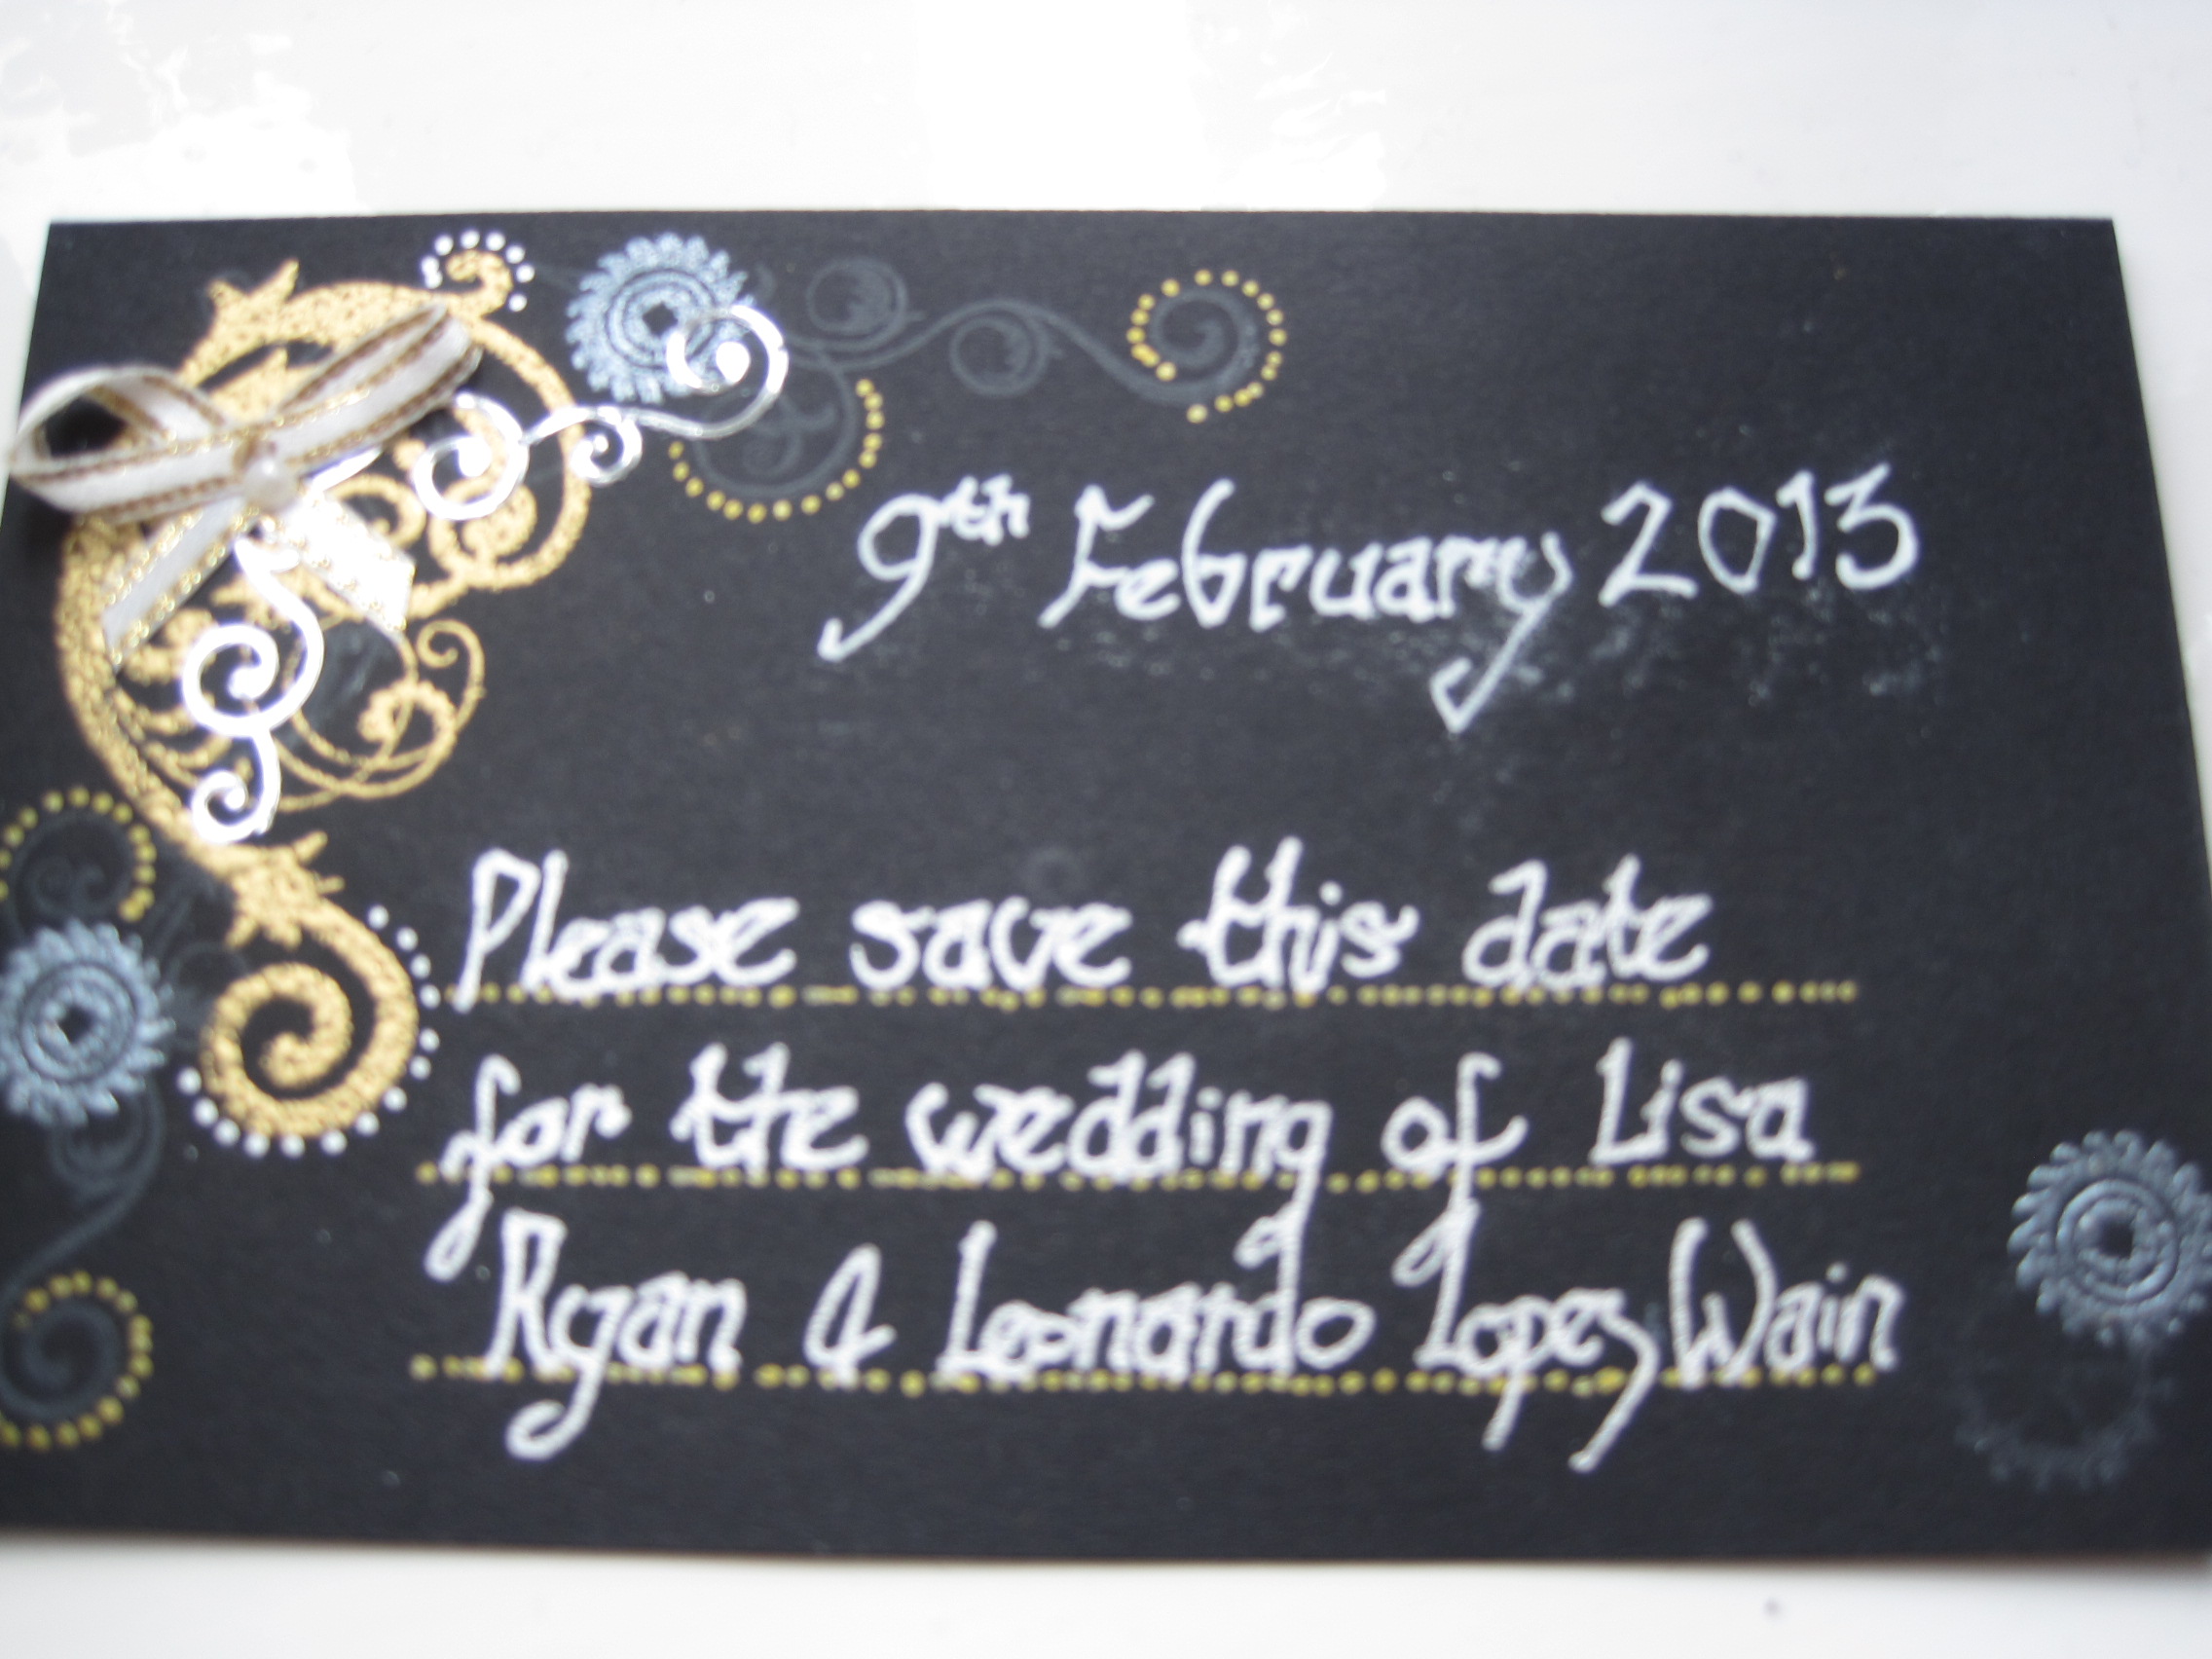 9th February 2013
Please save this date
for the wedding of Lisa
Ryan & Leonardo Lopes Wain